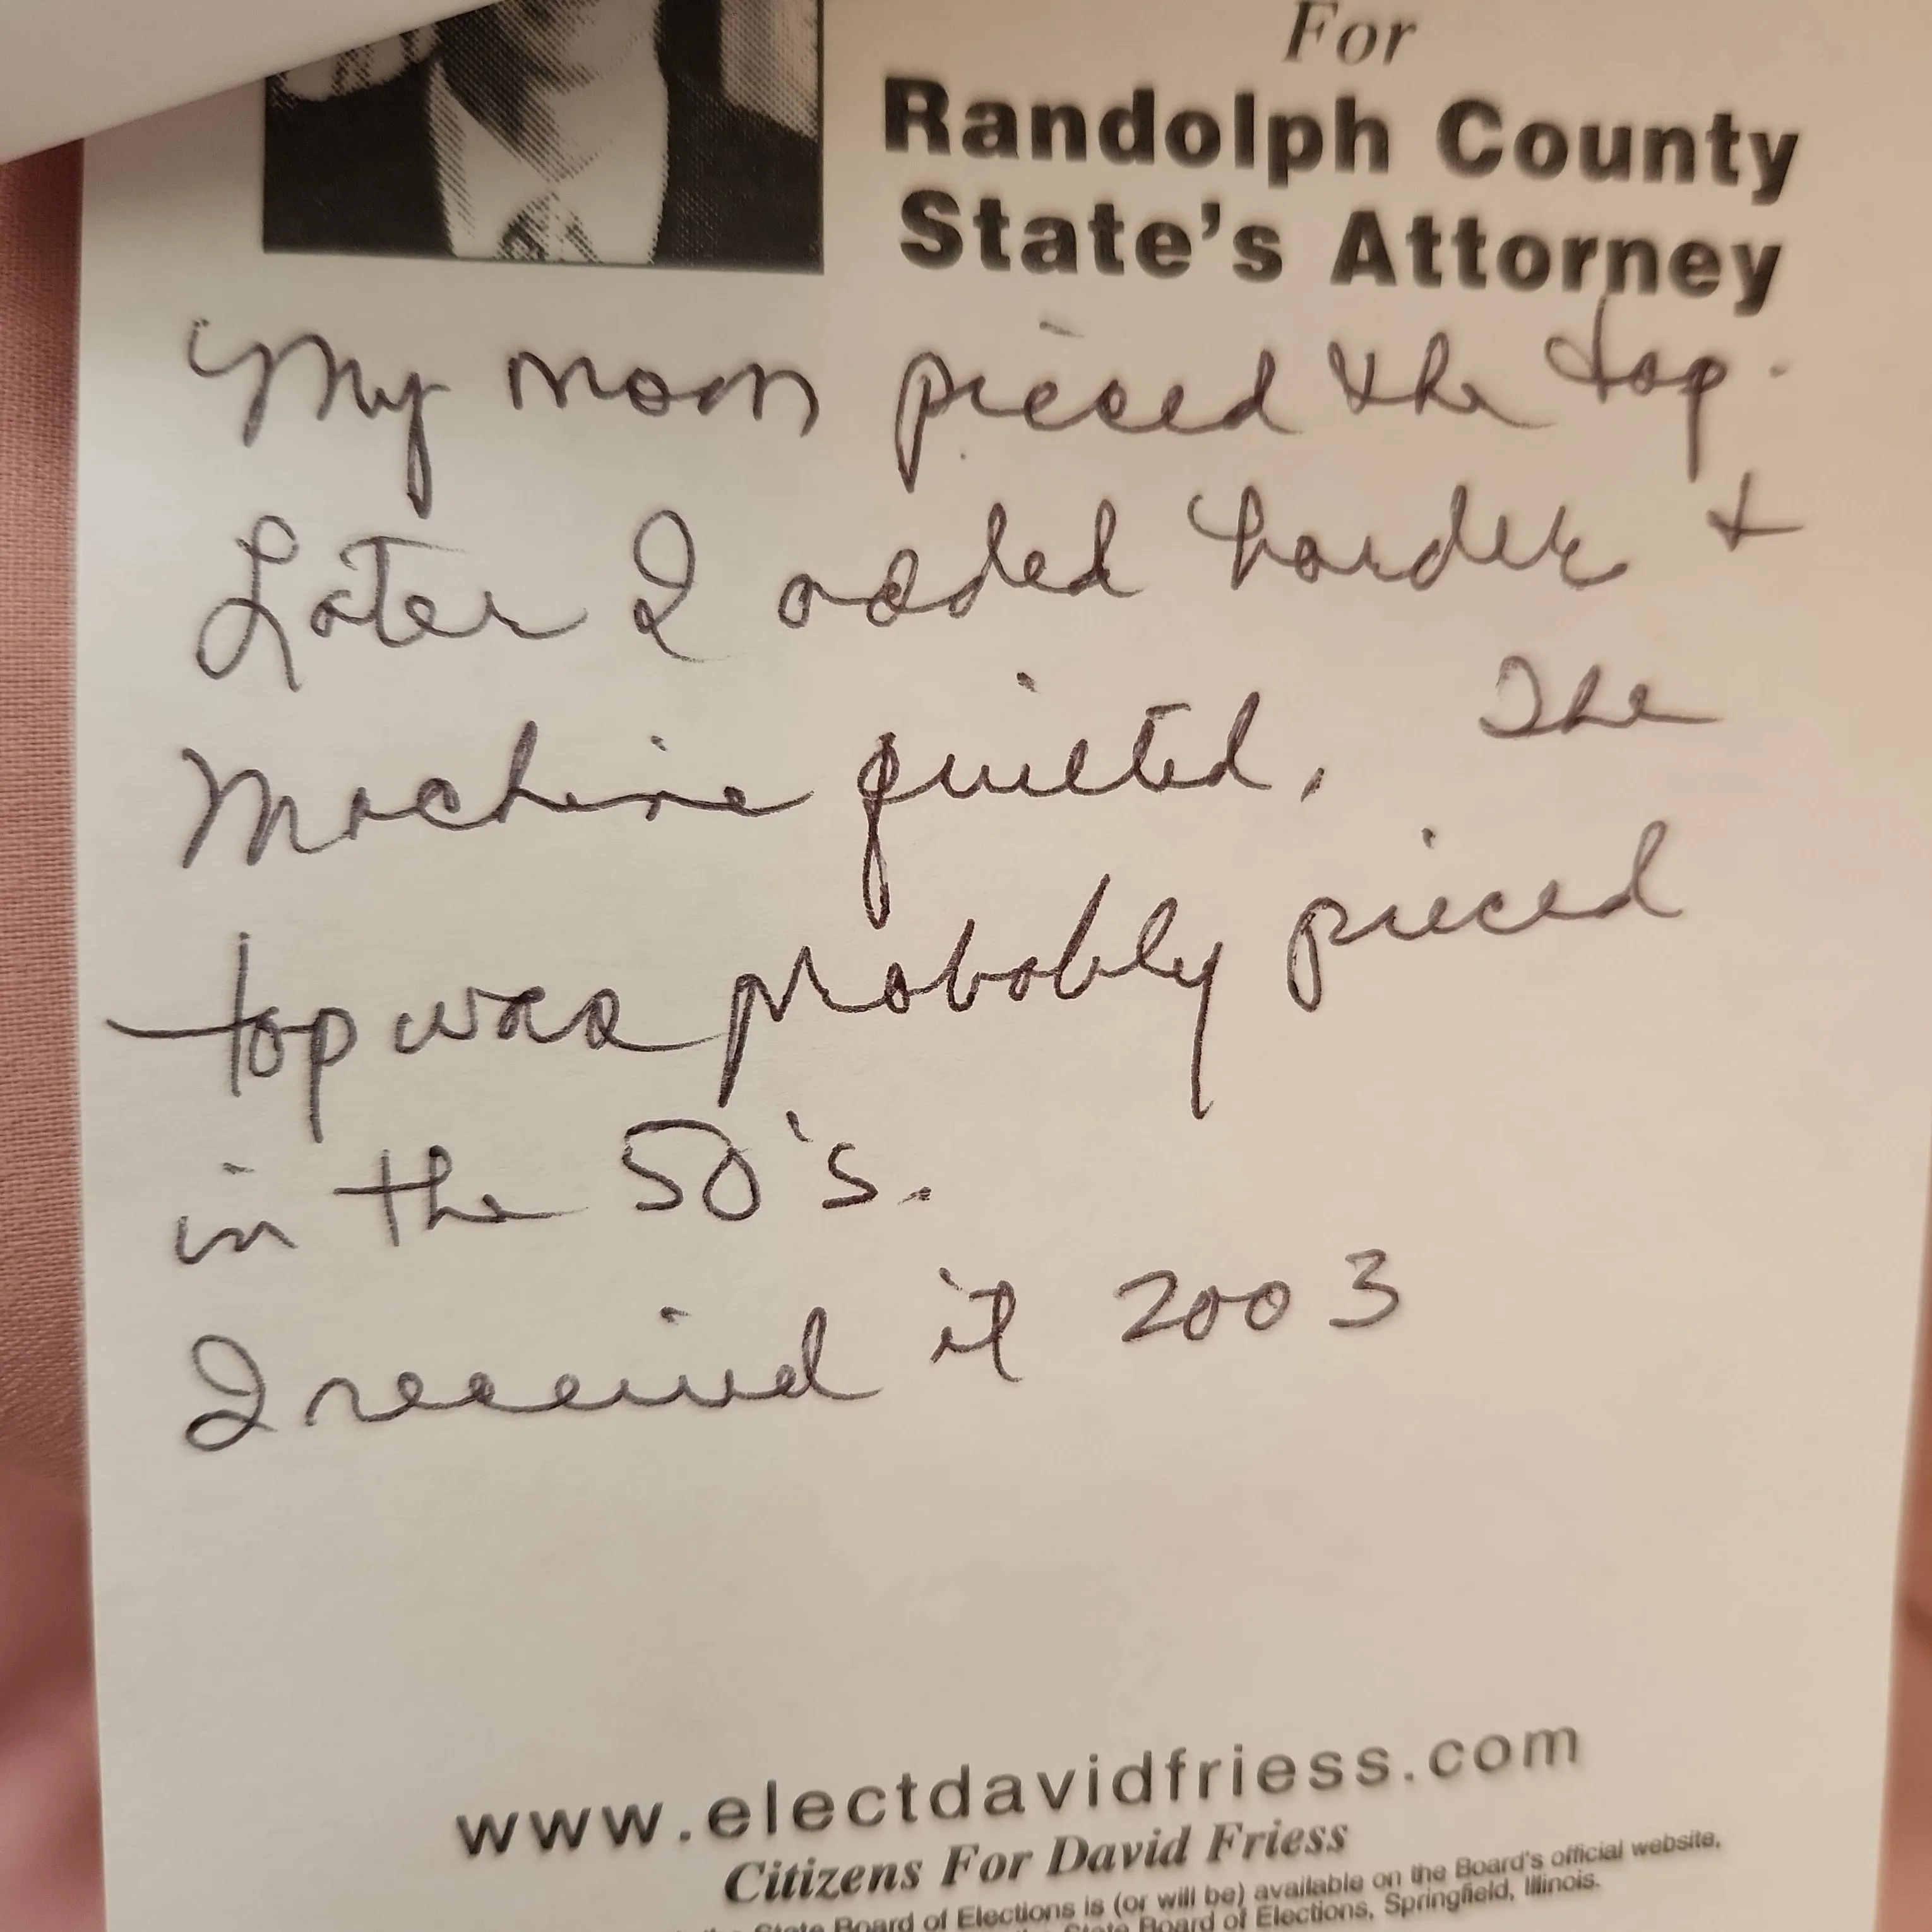 For
Randolph County
State's Attorney
My mom pieced the top.
Later I added border +
Machine quilted. The
top was probably pieced
in the 50's.
I received it 2003
www.electdavidfriess.com
Citizens For David Friess
State Board of Elections is (or will be) available on the Board's official website,
State Board of Elections, Springfield, Illinois.